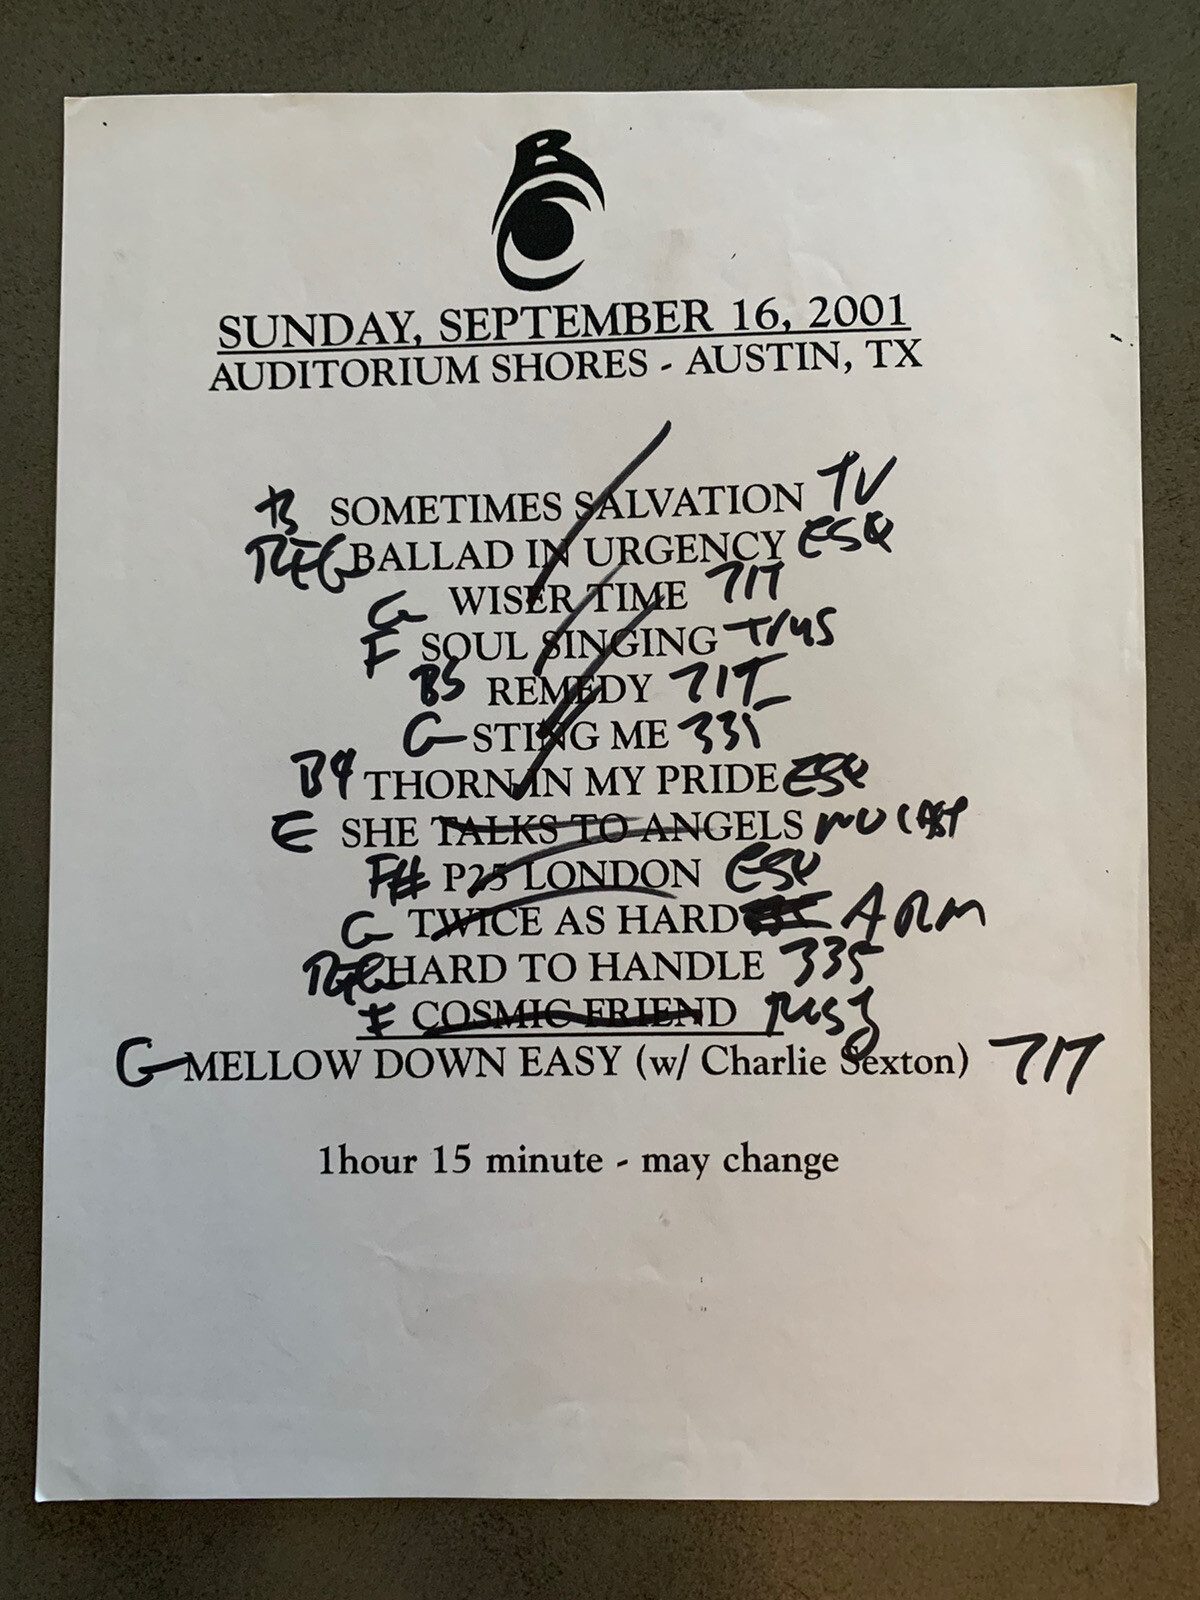 SUNDAY, SEPTEMBER 16, 2001
AUDITORIUM SHORES - AUSTIN, TX
B SOMETIMES SALVATION TV
REG BALLAD IN URGENCY ESQ
G WISER TIME 717
F SOUL SINGING
B5 REMEDY 717
G STING ME 335
THORN IN MY PRIDE ESQ
E SHE TALKS TO ANGELS
F# P25 LONDON ESQ
G TWICE AS HARD ARM
REG HARD TO HANDLE 335
COSMIC FRIEND
G MELLOW DOWN EASY (w/ Charlie Sexton) 717
1hour 15 minute - may change